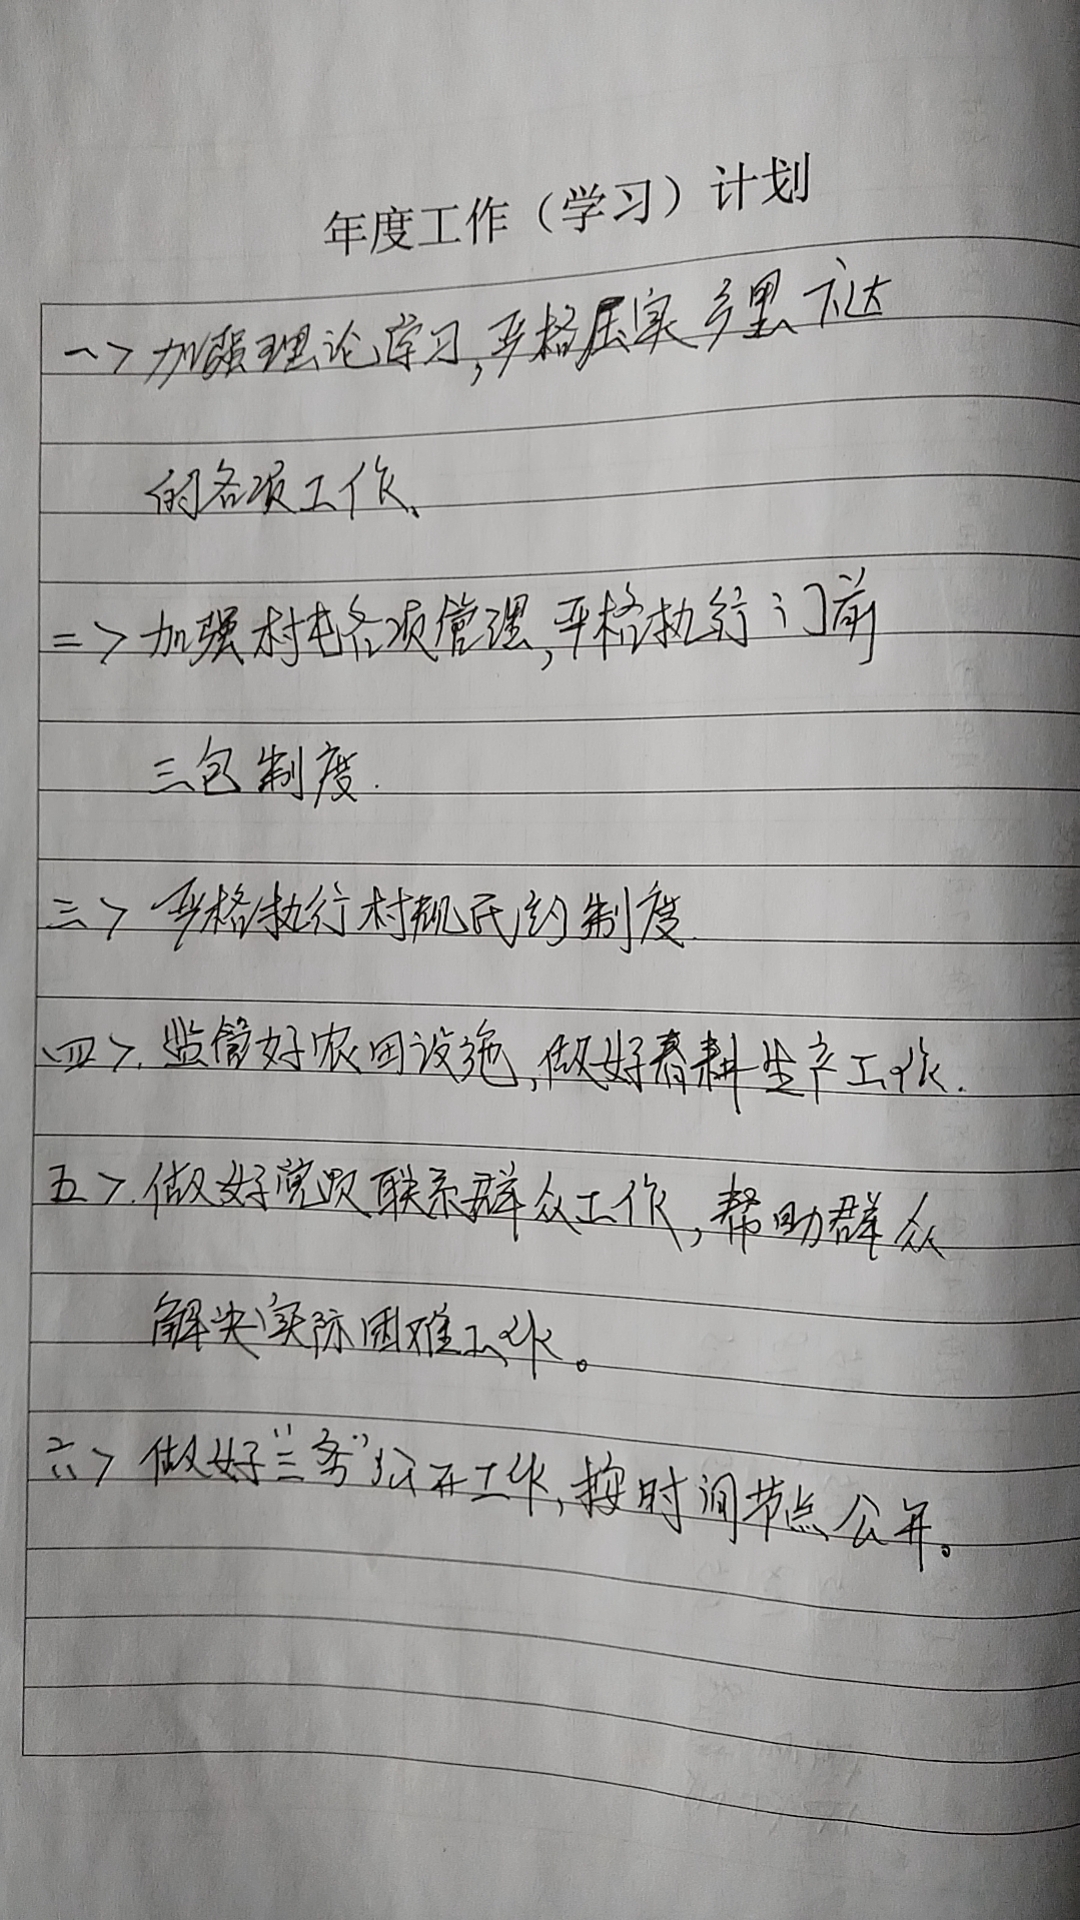 年度工作（学习）计划
一> 加强理论学习,严格压实乡里下达
的各项工作、
二> 加强村屯各项管理,严格执行门前
三包制度.
三> 严格执行村规民约制度.
四>. 监管好农田设施,做好春耕生产工作.
五>. 做好党员联系群众工作,帮助群众
解决实际困难工作。
六> 做好“三务”公开工作,按时间节点公开。